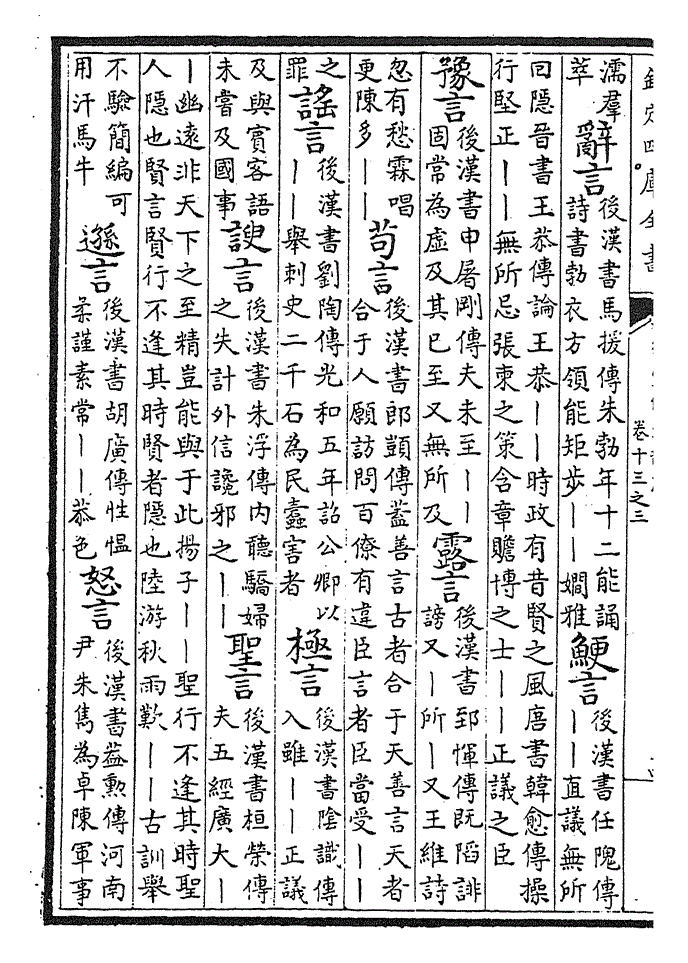 欽定四庫全書
卷十三之三
濡羣
萃
辭言
後漢書馬援傳朱勃年十二能誦
詩書勃衣方領能矩步丨丨嫺雅
鯁言
後漢書任隗傳
丨丨直議無所
回隱晉書王恭傳論王恭丨丨時政有昔賢之風唐書韓愈傳操
行堅正丨丨無所忌張柬之策含章贍博之士丨丨正議之臣
豫言
後漢書申屠剛傳夫未至丨丨
固常為虛及其已至又無所及
露言
後漢書郅惲傳既陷誹
謗又丨所丨又王維詩
忽有愁霖唱
更陳多丨丨
苟言
後漢書郎顗傳蓋善言古者合于天善言天者
合于人願訪問百僚有違臣言者臣當受丨丨
之
罪
謠言
後漢書劉陶傳光和五年詔公卿以
丨丨舉刺史二千石為民蠹害者
極言
後漢書陰識傳
入雖丨丨正議
及與賓客語
未嘗及國事
諛言
後漢書朱浮傳内聽驕婦
之失計外信讒邪之丨丨
聖言
後漢書桓榮傳
夫五經廣大丨
丨幽遠非天下之至精豈能與于此揚子丨丨聖行不逢其時聖
人隱也賢言賢行不逢其時賢者隱也陸游秋雨歎丨丨古訓舉
不驗簡編可
用汗馬牛
遜言
後漢書胡廣傳性愠
柔謹素常丨丨恭色
怒言
後漢書蓋勳傳河南
尹朱雋為卓陳軍事